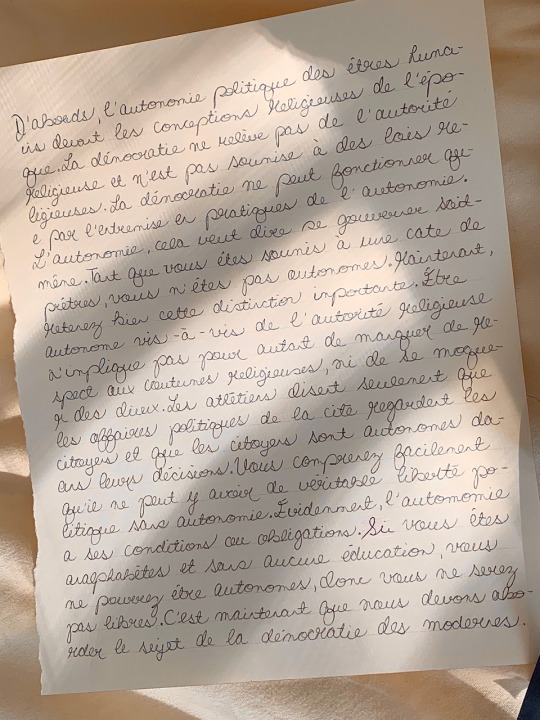 D'abords, l'autonomie politique des êtres huma-
ins devant les conceptions religieuses de l'épo-
que. La démocratie ne relève pas de l'autorité
religieuse et n'est pas soumise à des lois re-
ligieuses. La démocratie ne peut fonctionner qu-
e par l'entremise en pratiques de l'autonomie.
L'autonomie, cela veut dire se gouverner soit-
même. Tant que vous êtes soumis à une cate de
prêtres, vous n'êtes pas autonomes. Maintenant,
retenez bien cette distinction importante. Être
autonome vis-à-vis de l'autorité religieuse
n'implique pas pour autant de manquer de re-
spect aux coutumes religieuses, ni de se moque-
r des dieux. Les athétiens disent seulement que
les affaires politiques de la cité regardent les
citoyens et que les citoyens sont autonomes da-
ans leurs décisions. Vous comprenez facilement
qu'ie ne peut y avoir de véritable liberté po-
litique sans autonomie. Évidemment, l'automomie
a ses conditions ou obligations. Si vous êtes
analphabètes et sans aucune éducation, vous
ne pourrez être autonomes, donc vous ne serez
pas libres. C'est maintenant que nous devons abo-
rder le sujet de la démocratie des modernes.